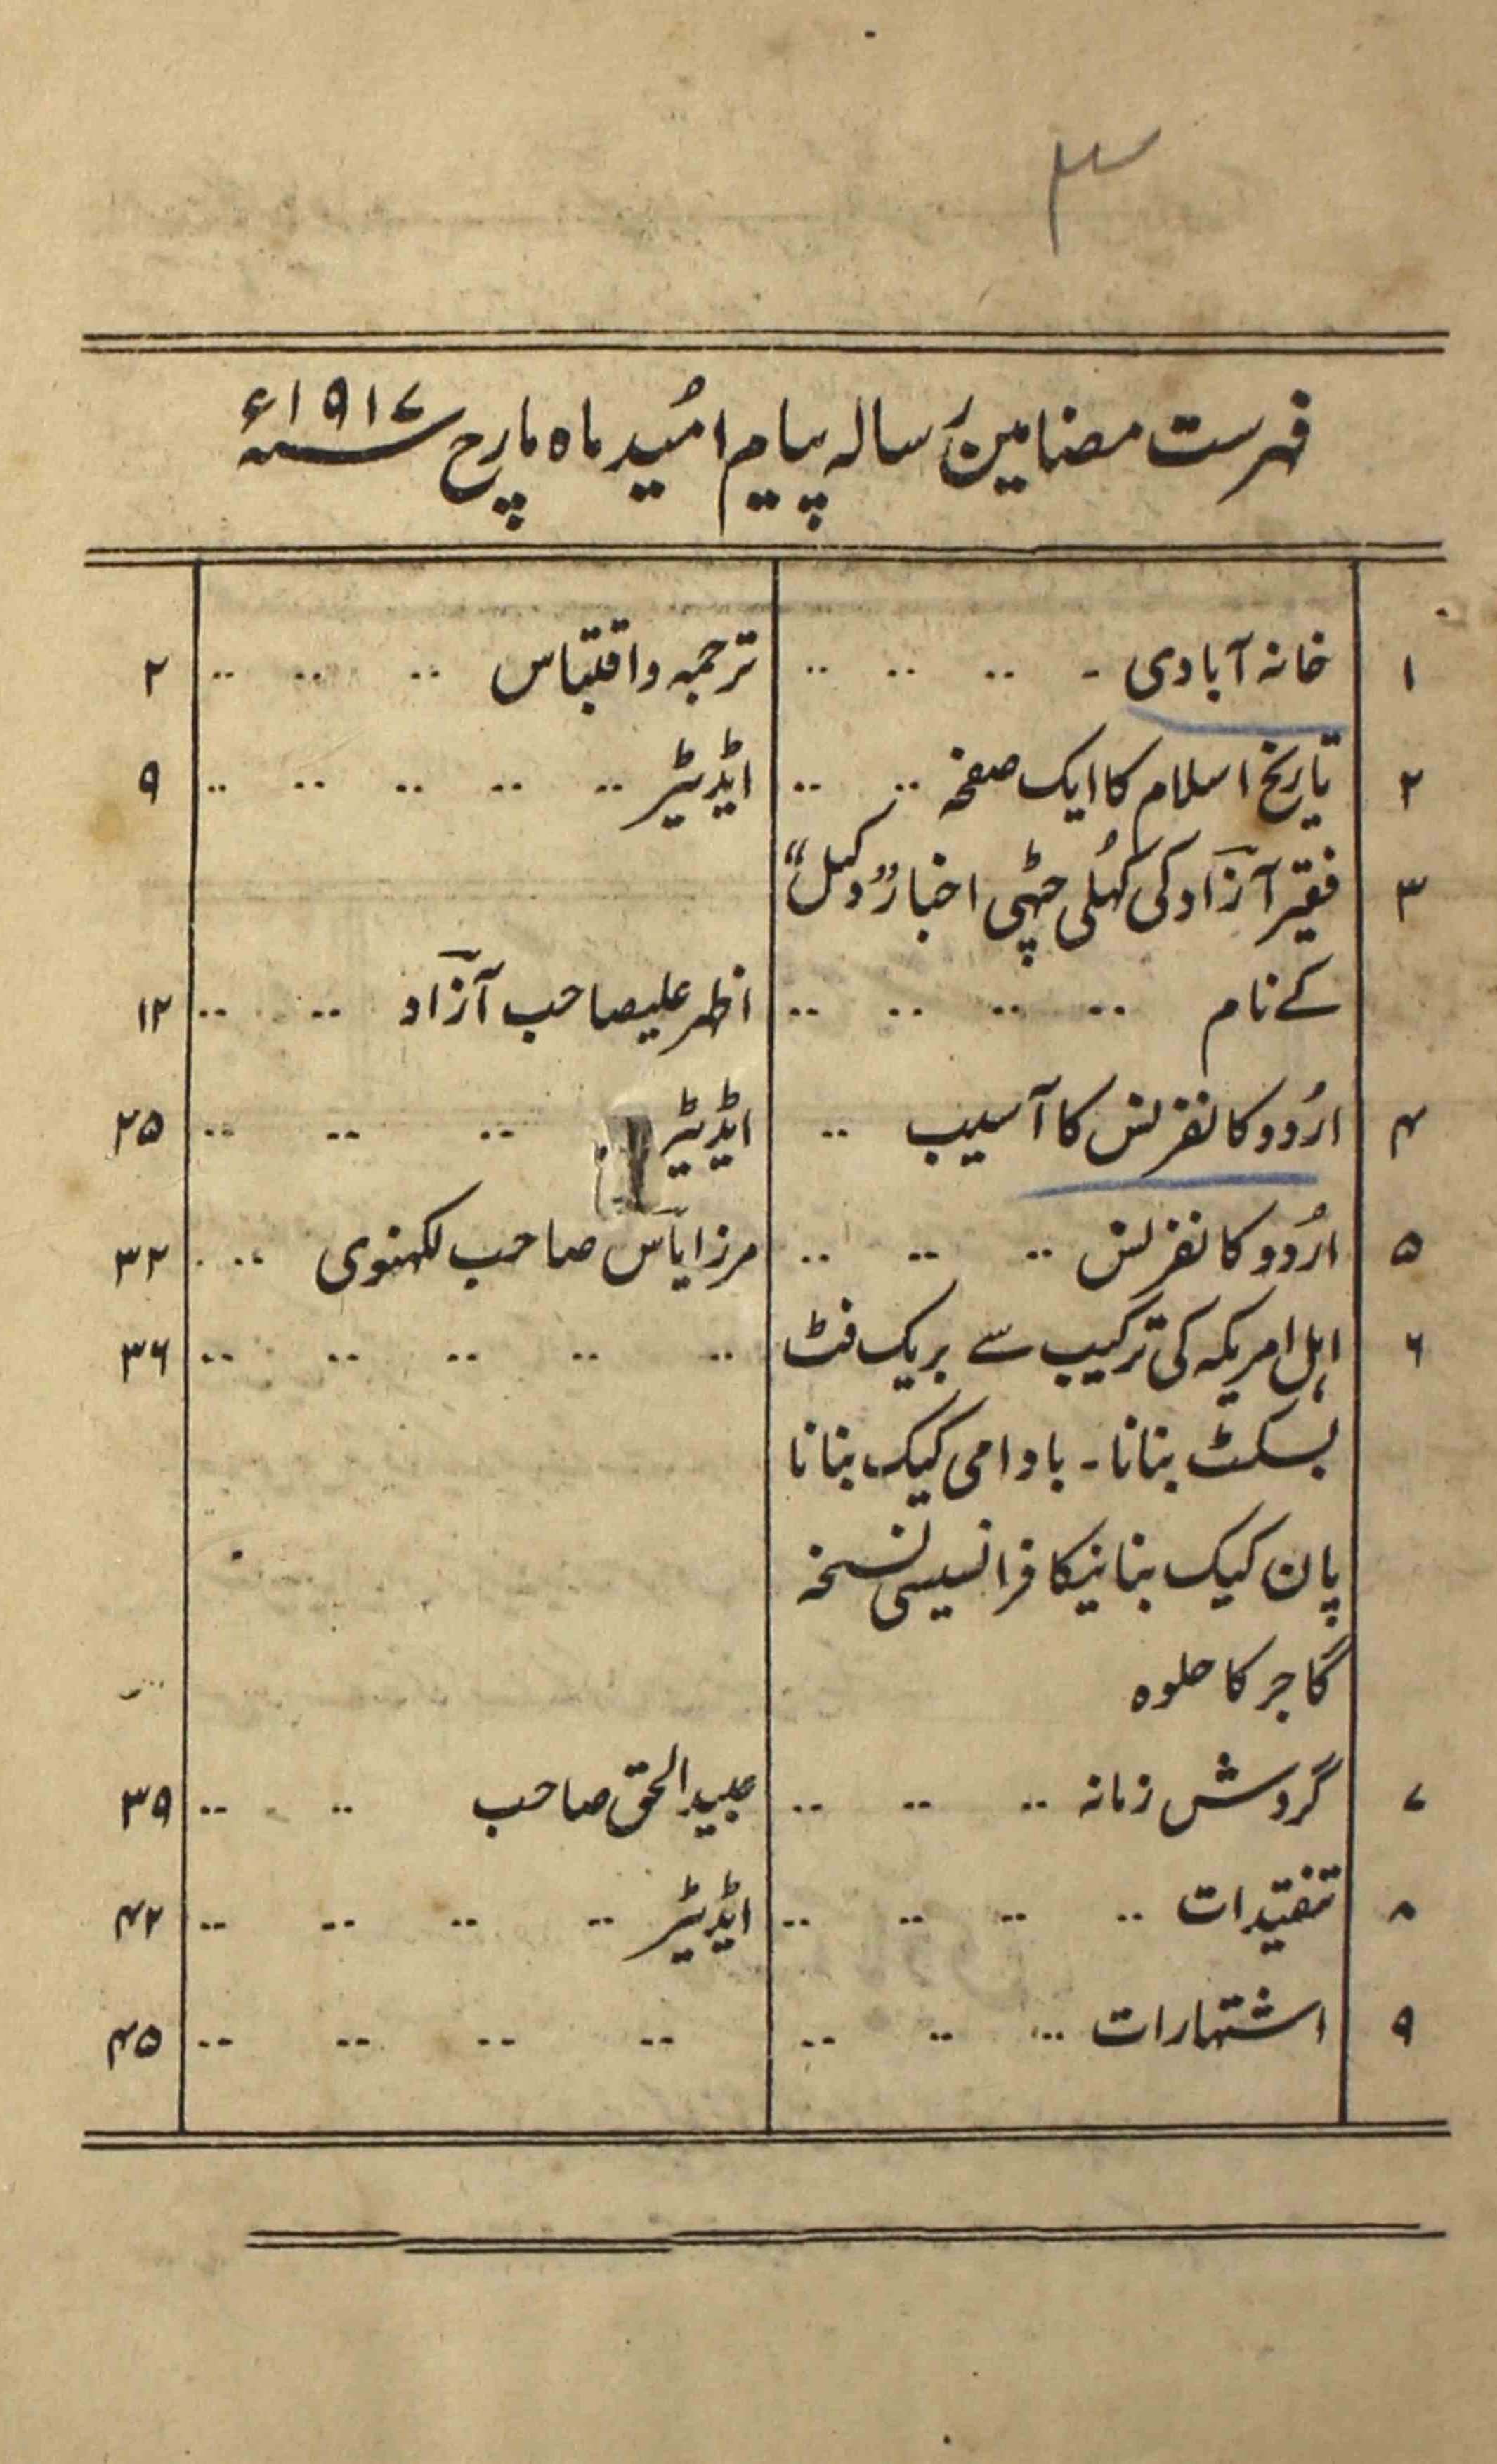 ۳
فہرست مضامین رسالہ پیام اُمید ماہ مارچ ۱۹۱۷ء
۱ خانہ آبادی - .. .. .. ترجمہ واقتباس .. .. .. ۲
۲ تاریخ اسلام کا ایک صفحہ .. .. ایڈیٹر .. .. .. .. .. ۹
۳ فقیر آزاد کی کُہلی چٹہی اخبار "وکیل"
کے نام .. .. .. .. اظہر علیصاحب آزاد .. .. ۱۲
۴ اُردو کانفرنس کا آسیب .. ایڈیٹر .. .. .. ۲۵
۵ اُردو کانفرنس .. .. .. مرزا یاس صاحب لکہنوی .. . ۳۲
۶ اہل امریکہ کی ترکیب سے بریک فٹ .. .. .. .. .. ۳۶
بسکٹ بنانا - بادامی کیک بنانا
پان کیک بنانیکا فرانسیسی نسخہ
گاجر کا حلوہ
۷ گردش زمانہ .. .. .. عبیدالحق صاحب .. .. ۳۹
۸ تنقیدات .. .. .. .. ایڈیٹر .. .. .. .. ۴۲
۹ اشتہارات ... .. .. .. .. .. .. ۴۵